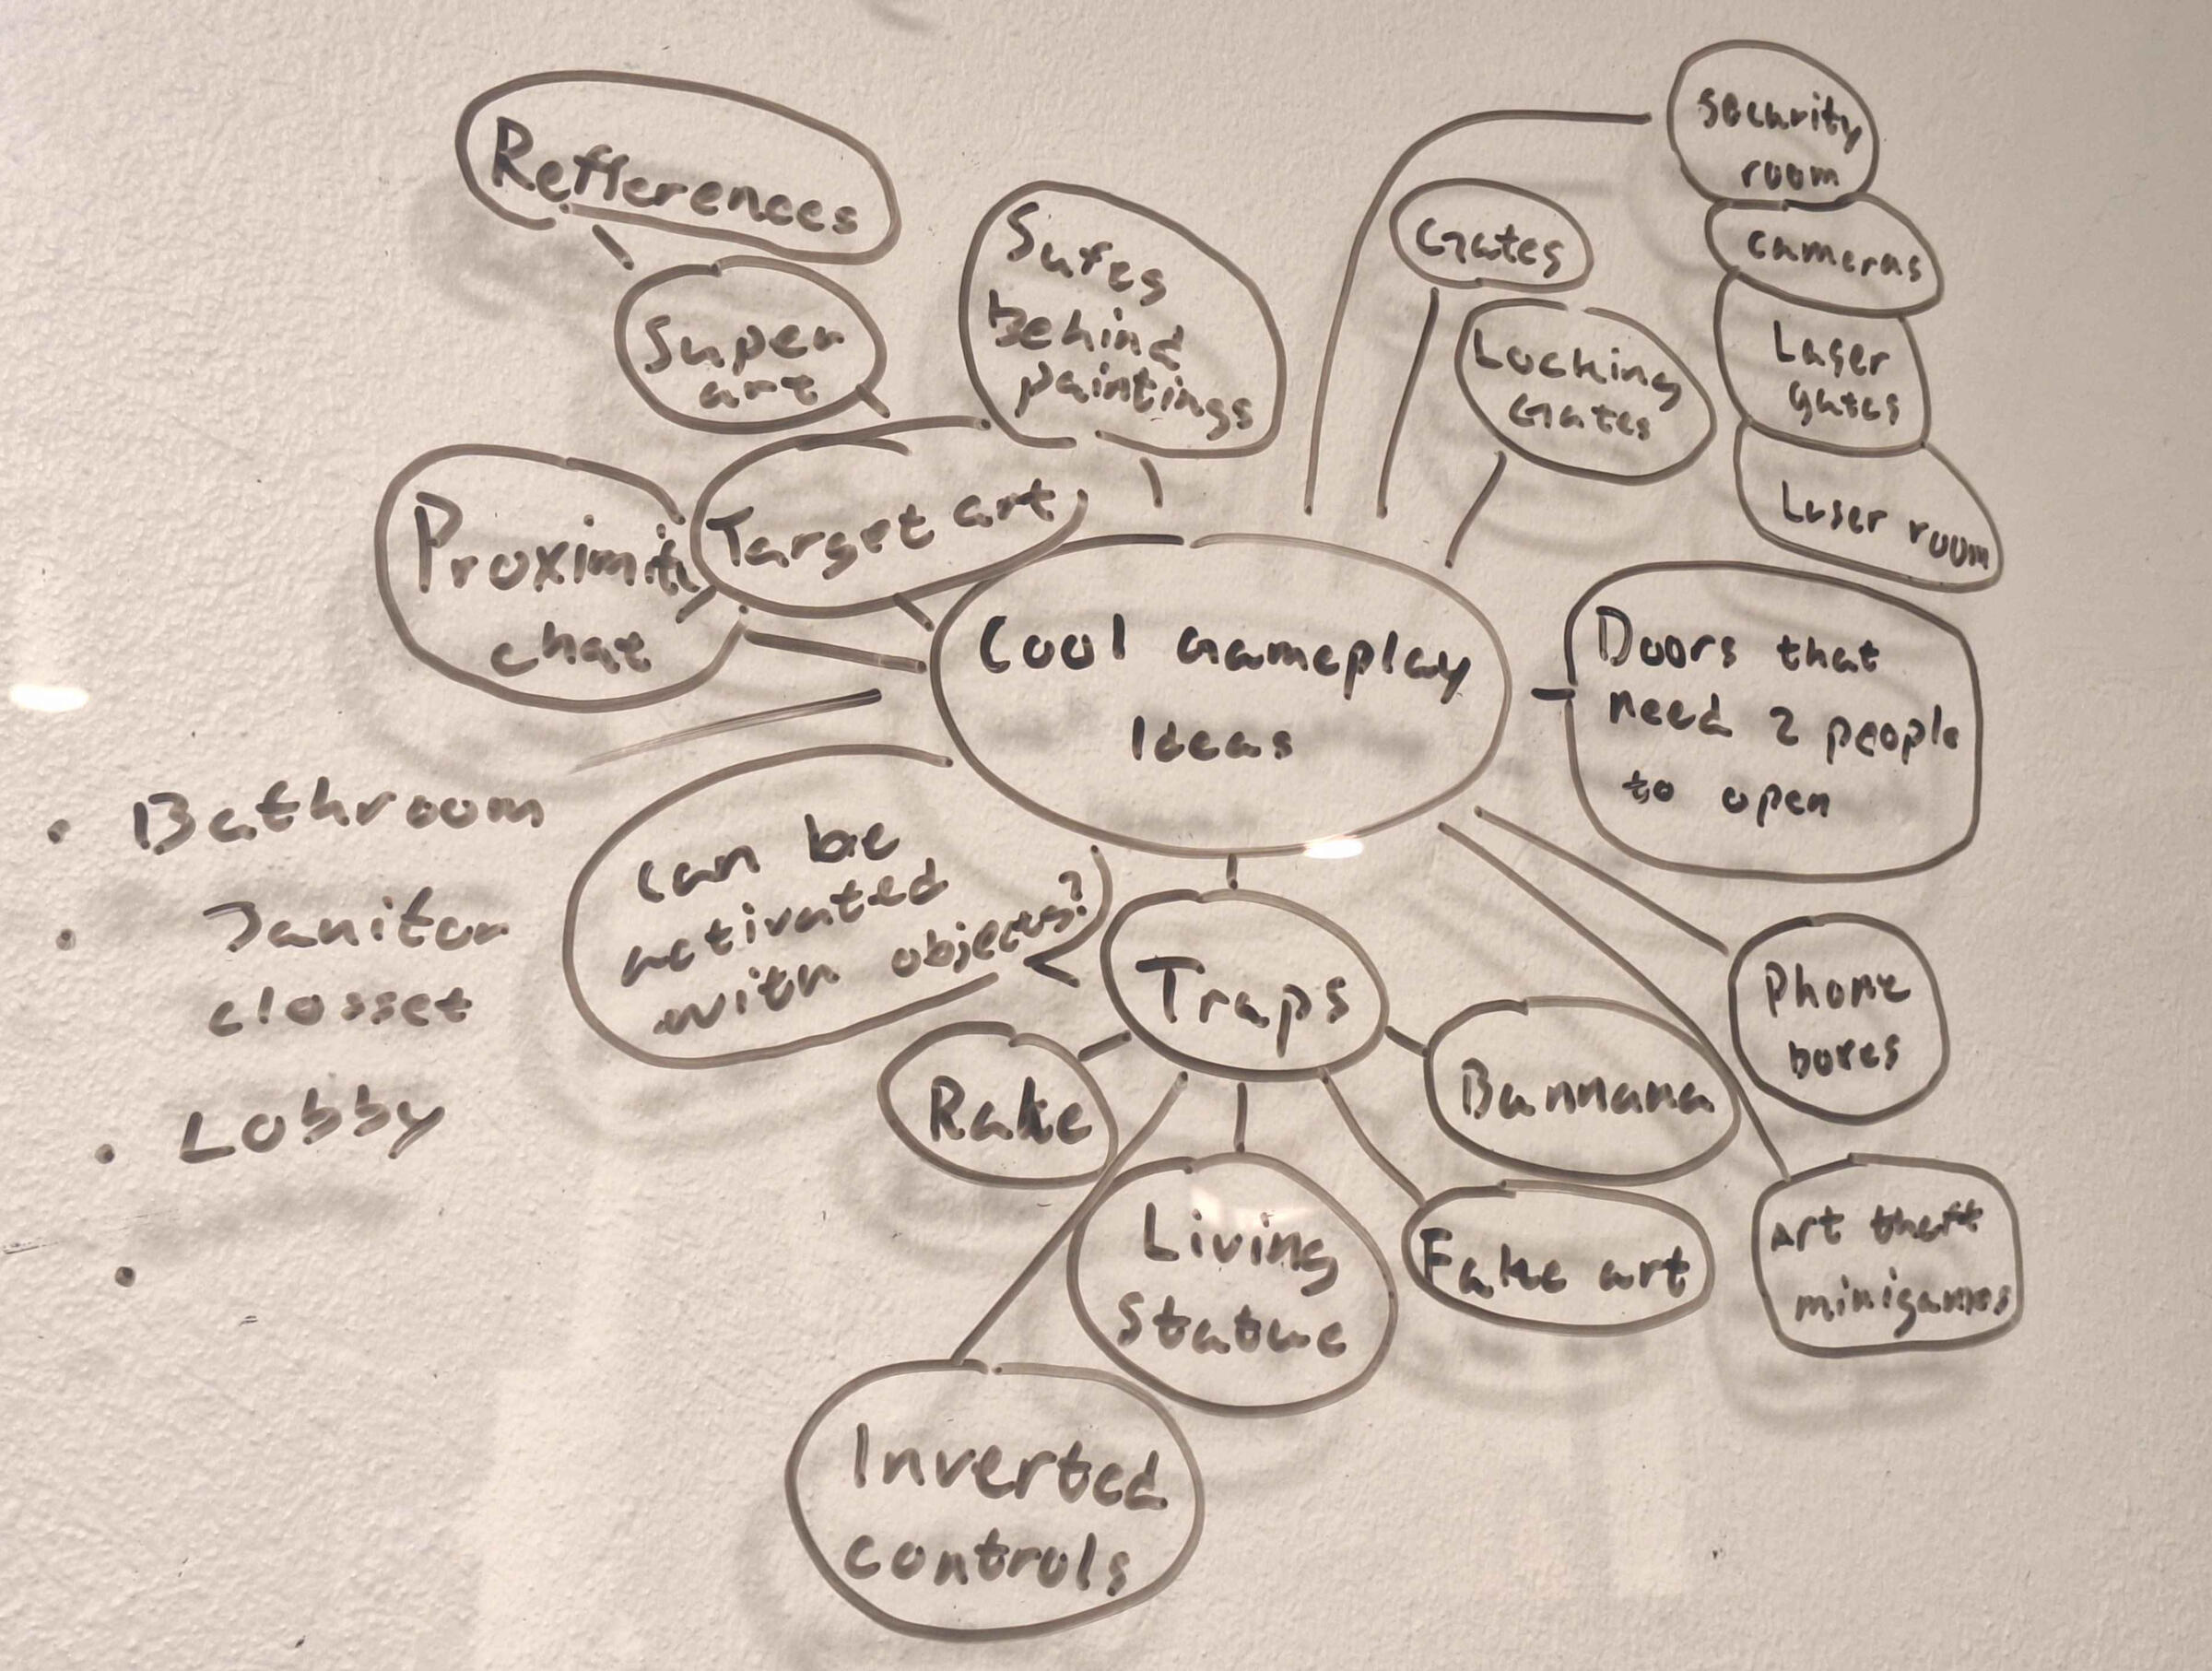 Refferences
Super
art
Safes
behind
paintings
Security
room
Gates
cameras
Locking
Gates
Laser
gates
Laser room
Proximiti
chat
Target art
Cool Gameplay
Ideas
Doors that
need 2 people
to open
• Bathroom
• Janitor
closset
• Lobby
•
can be
activated
with objects?
Traps
Rake
Bannana
Phone
boxes
Living
Statue
Fake art
Art theft
minigames
Inverted
controls